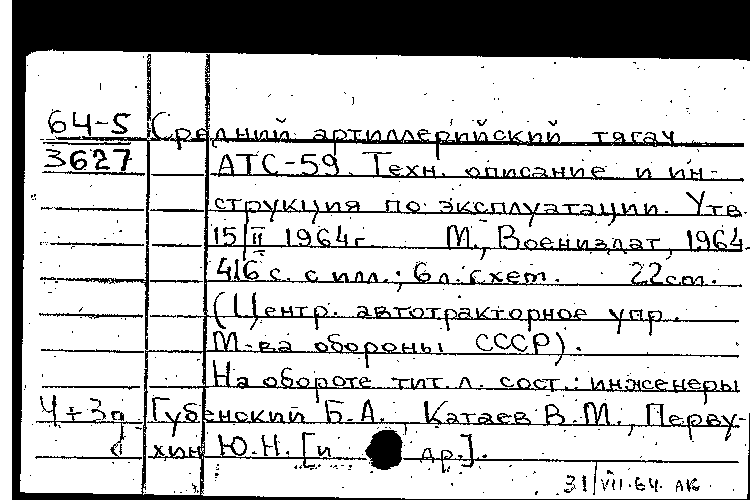 64-5 Средний артиллерийский тягач
3627 АТС-59. Техн. описание и ин-
струкция по эксплуатации. Утв.
15/II 1964г. М., Воениздат, 1964.
416 с. с илл.; 6 л. схем. 22 см.
(Центр. автотракторное упр.
М-ва обороны СССР).
На обороте тит. л. сост.: инженеры
Ч+3д Губенский Б.А., Катаев В.М., Перву-
хин Ю.Н. [и др.].
31/VII-64 ЛК